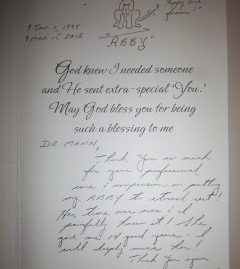 "ABBY"
God knew I needed someone
and He sent extra-special 'You.'
May God bless you for being
such a blessing to me
DR. MANN,
Thank you so much
for your professional
care & compassion in putting
my ABBY to eternal rest!
Her time was over & I
painfully knew it! She
gave me 14 good years & I
will deeply miss her!
Thank you again